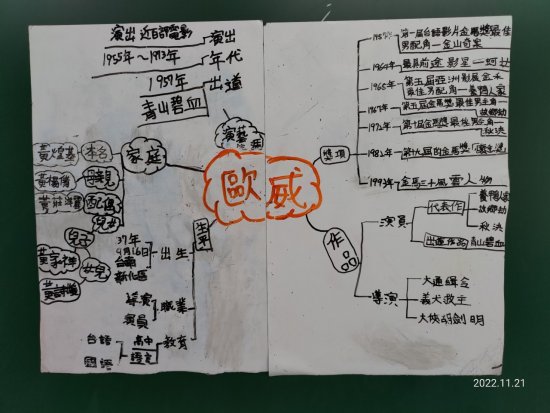 歐威
演藝
演出 近百部電影
演出
1955年～1973年
年代
1957年
出道
青山碧血
家庭
黃煌基
本名
母親
配偶
兒子
女兒
生平
37年
9月16日
台南
新化區
出生
演員
職業
台語
國語
高中
教育
獎項
1957年 第一屆台語影片金馬獎最佳
男配角－金山奇案
1964年 最具前途影星－蚵女
1965年 第五屆亞洲影展金禾
最佳男配角－養鴨人家
1967年 第五屆金馬獎最佳男主角－
故鄉劫
1972年 第十屆金馬獎最佳男主角－
秋決
1982年 第十九屆的金馬獎
1993年 金馬三十風雲人物
作品
演員
代表作
養鴨人家
故鄉劫
秋決
出道作品
青山碧血
導演
大通緝令
義犬救主
大俠胡劍明
2022.11.21